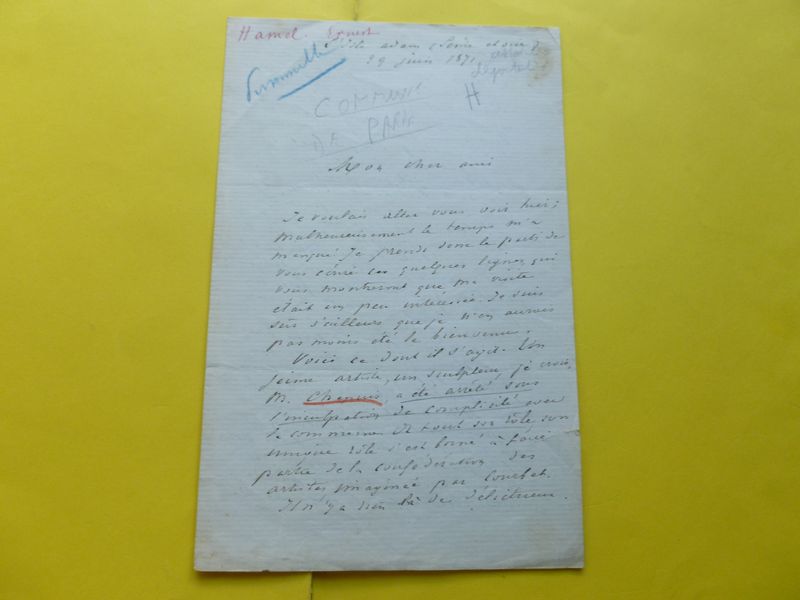 Hamel. Ernest
l'isle adam (Seine et oise)
29 juin 1871
COMMUNE
DE PARIS
H
Mon cher ami
Je voulais aller vous voir hier;
malheureusement le temps m'a
manqué. Je prends donc le parti de
vous écrire ces quelques lignes, qui
vous montreront que ma visite
était un peu intéressée. Je suis
sûr d'ailleurs que je n'en aurais
pas moins été le bienvenu.
Voici ce dont il s'agit. Un
jeune artiste, un sculpteur, je crois,
M. a été arrêté sous
l'inculpation de complicité avec
la commune. Or tout son rôle son
unique rôle s'est borné à faire
partie de la confédération des
artistes imaginée par Courbet.
Il n'y a rien là de délictueux.